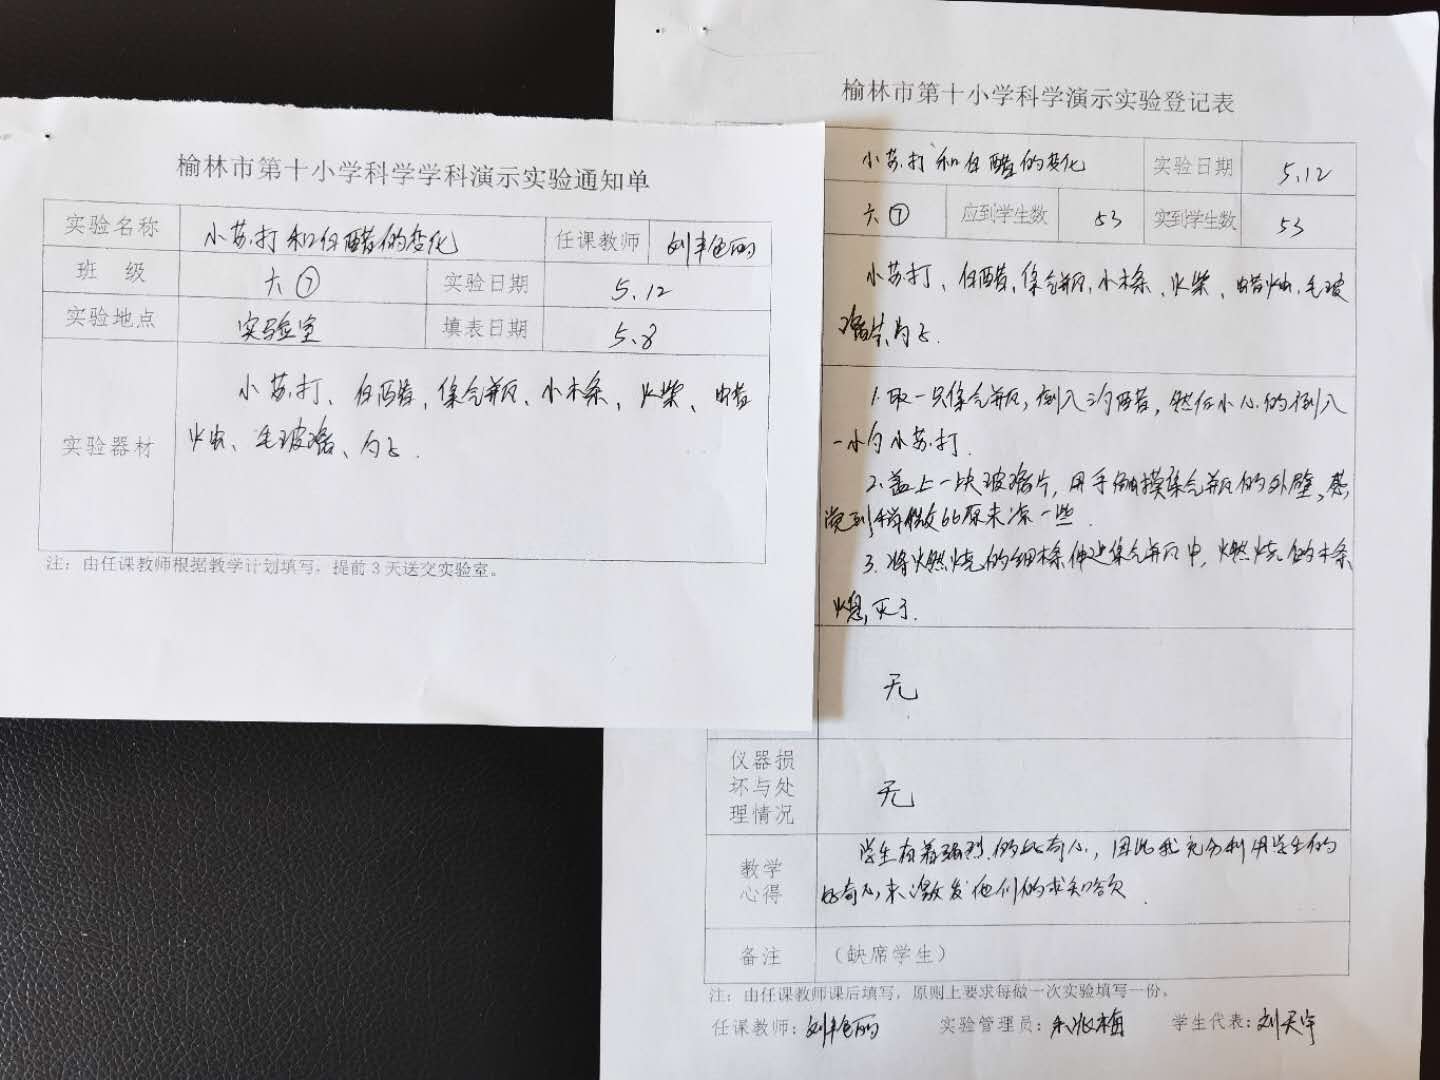 榆林市第十小学科学学科演示实验通知单
实验名称 小苏打和白醋的变化 任课教师 刘艳丽
班 级 六⑦ 实验日期 5.12
实验地点 实验室 填表日期 5.8
实验器材 小苏打、白醋、集气瓶、小木条、火柴、蜡
烛、毛玻璃、勺子.
注：由任课教师根据教学计划填写，提前3天送交实验室。
榆林市第十小学科学演示实验登记表
小苏打和白醋的变化 实验日期 5.12
六⑦ 应到学生数 53 实到学生数 53
小苏打、白醋、集气瓶、小木条、火柴、蜡烛、毛玻
璃片、勺子.
1.取一只集气瓶，倒入三勺醋，然后小心的倒入
一小勺小苏打.
2.盖上一块玻璃片，用手触摸集气瓶的外壁，感
觉到稍微比原来凉一些.
3.将燃烧的细木条伸进集气瓶中，燃烧的木条
熄灭了.
无
仪器损
坏与处
理情况
无
教学
心得
学生有着强烈的好奇心，因此我充分利用学生的
好奇心来激发他们的求知欲.
备注 （缺席学生）
注：由任课教师课后填写，原则上要求每做一次实验填写一份。
任课教师：刘艳丽 实验管理员： 学生代表：刘天宇